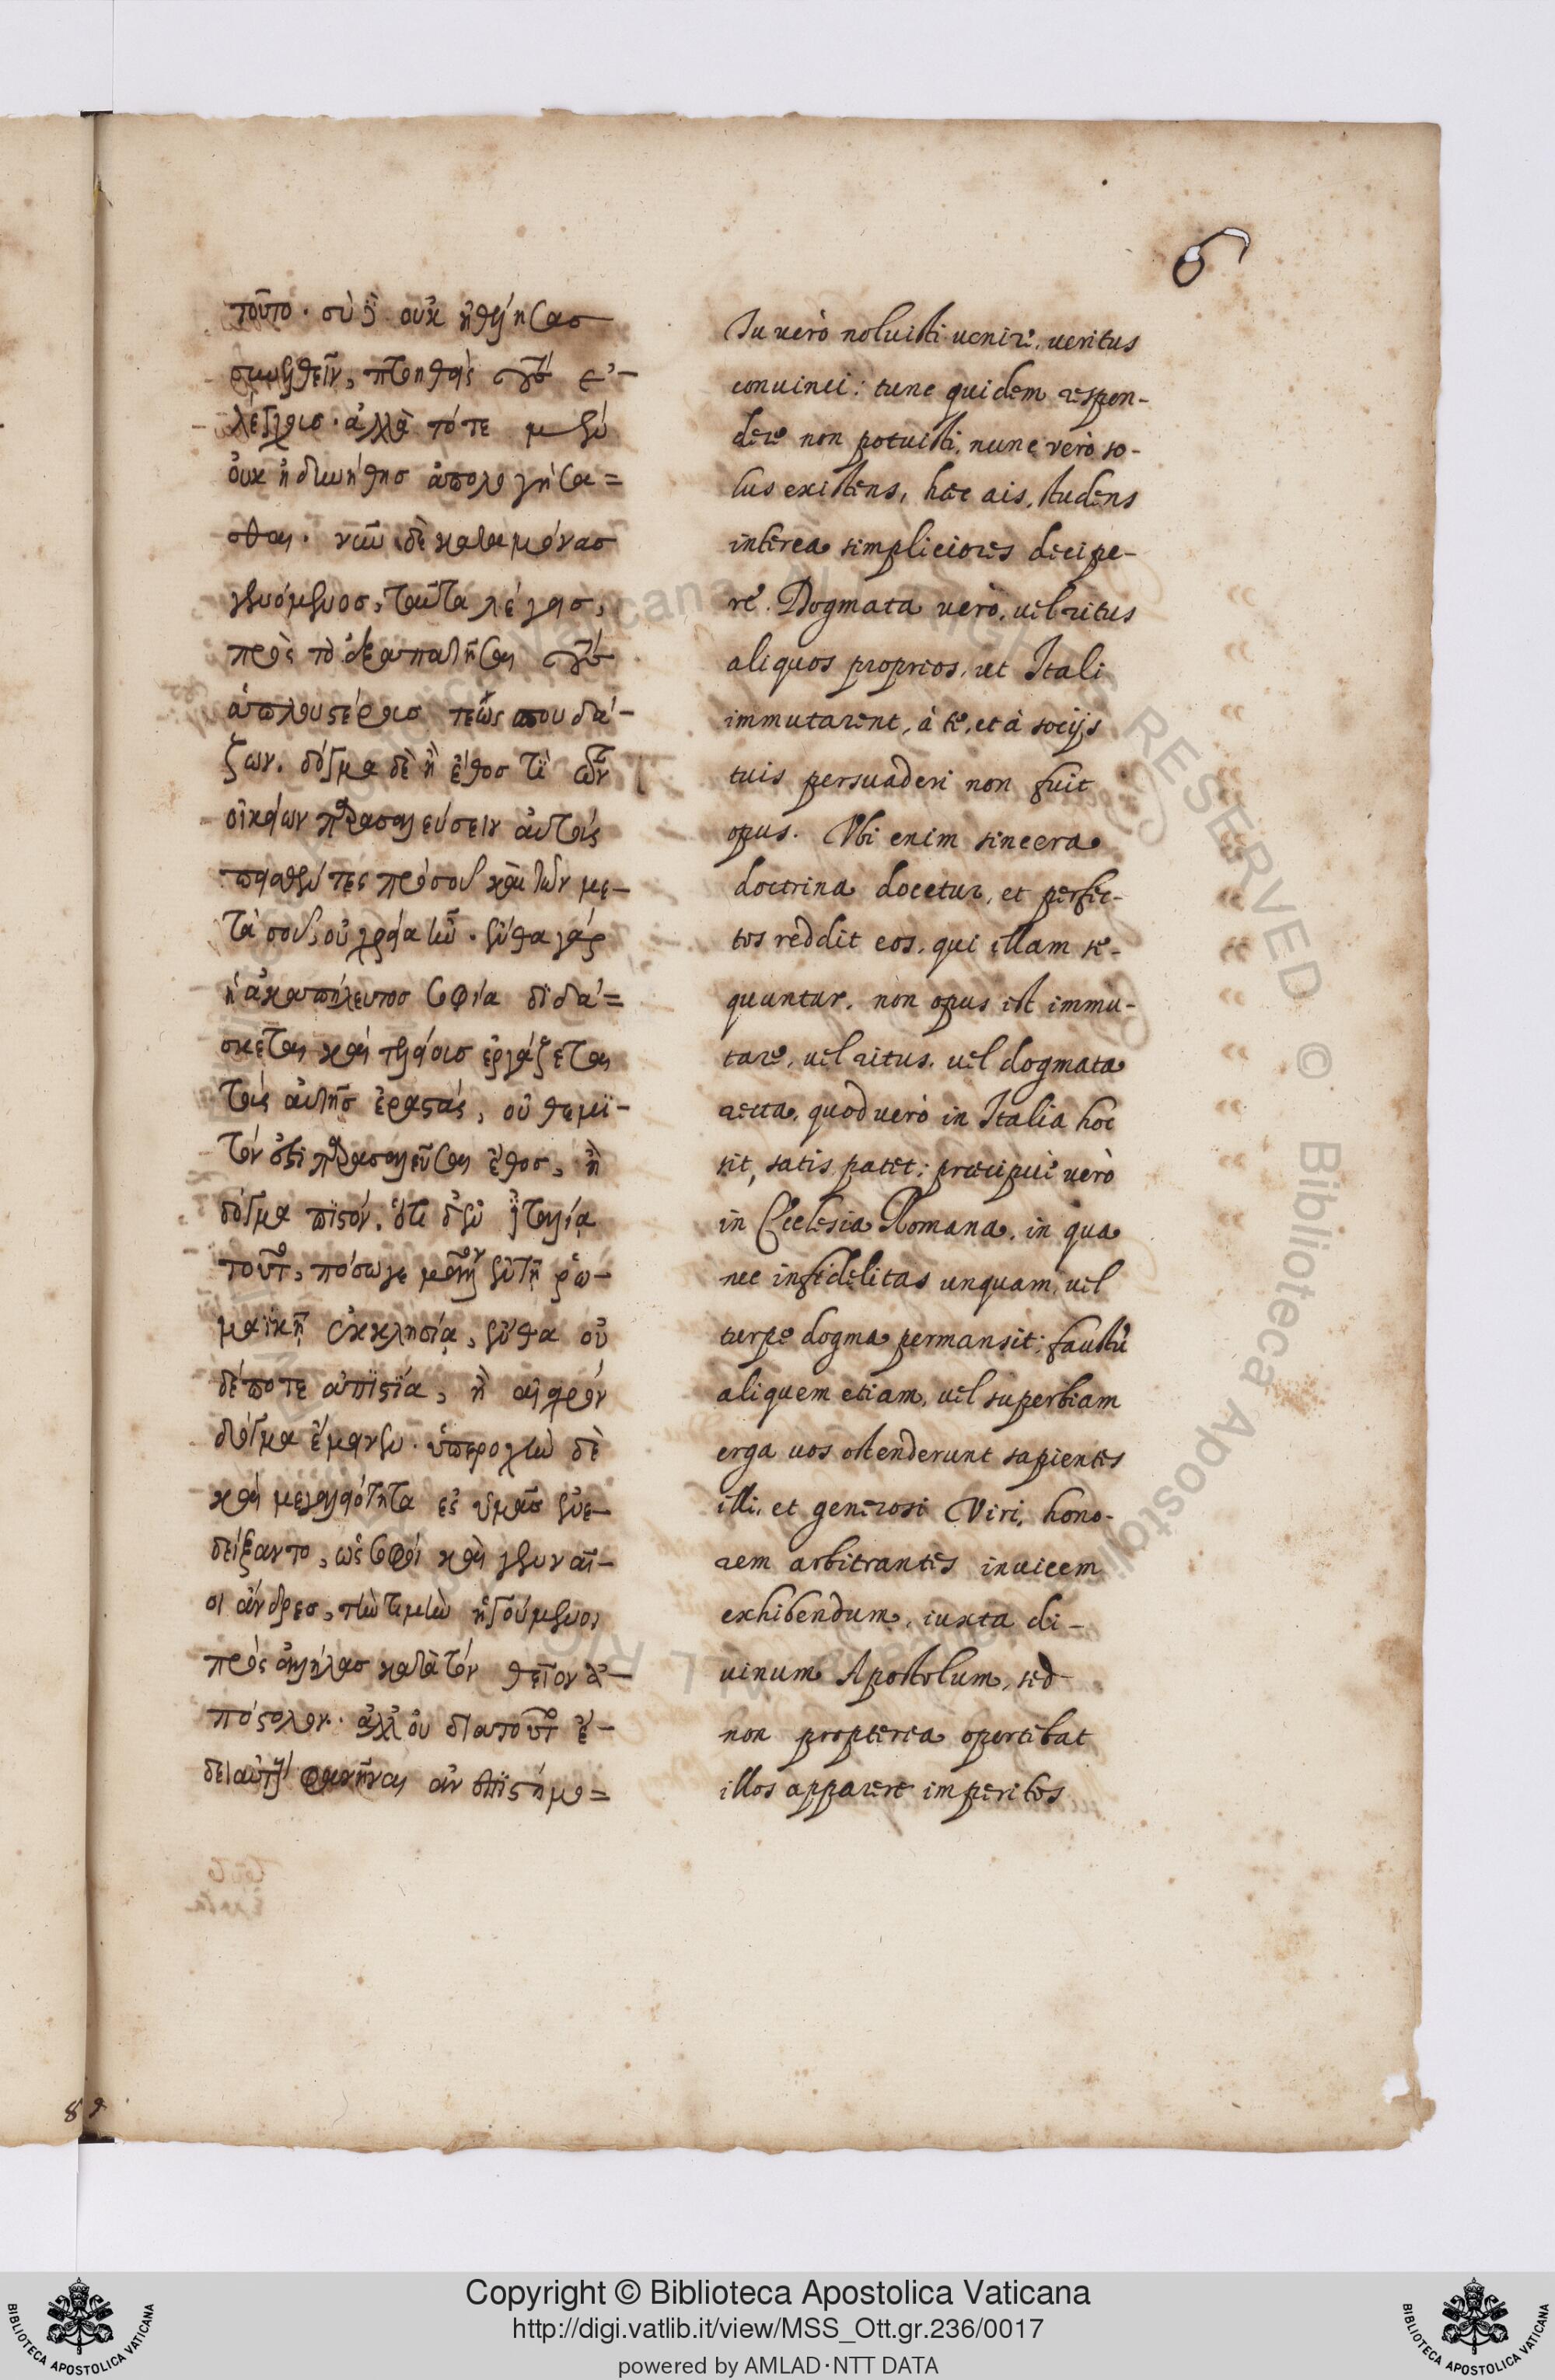 6
τοῦτο · σὺ δ οὐκ ἠθέλησας
συνελθεῖν, πτοηθεὶς τοὺς ἐ-
λέγχους · ἀλλὰ τότε μὲν
οὐκ ἠδυνήθης ἀπολογήσα=
σθαι. νῦν δὲ καταμόνας
γενόμενος, ταῦτα λέγεις,
πρὸς τὸ ἐξαπατῆσαι τοὺς
ἁπλουστέρους τέως σπουδά-
ζων. δόγμα δὲ ἢ ἔθος τῒ τῶν
οἰκείων παρασαλεύσειν αὐτοὺς
πεισθέντες πρὸς σοῦ καὶ τῶν με-
τὰ σοῦ, οὐ χρεία ἦν. ἔνθα γάρ
ἡ ἀκαπήλευτος σοφία διδά=
σκεται καὶ τελείους ἐργάζεται
τοὺς αὐτῆς ἐραστάς, οὐ θεμϊ-
τόν ἐστι παρασαλεῦσαι ἔθος, ἢ
δόγμα πϊστόν. ὅτι δ' ἐν ἰταλίᾳ
τοῦτο, πόσῳ γε μᾶλλον ἐν τῇ ῥω-
μαϊκῇ ἐκκλησίᾳ, ἔνθα οὐ
δέποτε ἀπϊστία, ἢ αἰσχρόν
δόγμα ἔμεινεν. ὑπεροχὴν δὲ
καὶ μεγαλειότητα εἰς ὑμᾶς ἐνε-
δείξαντο, ὡς σοφοὶ καὶ γενναῖ-
οι ἄνδρες, τὴν τιμὴν ἡγούμενοι
πρὸς ἀλλήλας κατὰ τόν θεῖον ἀ-
πόστολον. ἀλλ' οὐ διατοῦτο ἔ-
δει αὐτοὺς φανῆναι ἀνεπϊστήμο=
Tu uerò noluisti uenire, ueritus
conuinci: tunc quidem respon-
dere non potuisti, nunc verò so-
lus existens, hæc ais, studens
interea simpliciores decipe-
re. Dogmata uerò, uel ritus
aliquos proprios, ut Itali
immutarent, à te, et à socijs
tuis persuaderi non fuit
opus. Vbi enim sincera
doctrina docetur, et perfec-
tos reddit eos, qui illam se-
quuntur, non opus est immu-
tare, uel ritus, uel dogmata
recta, quod uerò in Italia hoc
sit, satis patet: præcipuè uerò
in Ecclesia Romana, in qua
nec infidelitas unquam, uel
turpe dogma permansit; faustũ
aliquem etiam, uel superbiam
erga uos ostenderunt sapientes
illi, et generosi Viri, hono-
rem arbitrantes inuicem
exhibendum, iuxta di-
uinum Apostolum, sed
non propterea oportebat
illos apparere imperitos
Copyright © Biblioteca Apostolica Vaticana
http://digi.vatlib.it/view/MSS_Ott.gr.236/0017
powered by AMLAD·NTT DATA